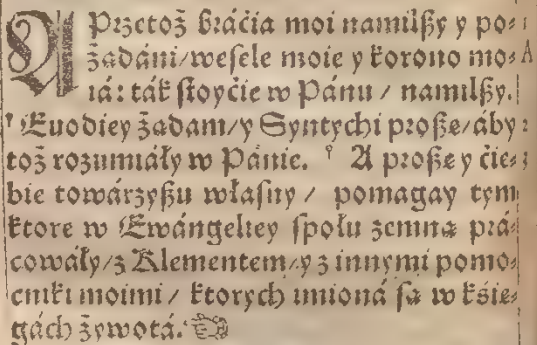 A Przetoż bráćia moi namilſzy y po⸗
żadáni/weſele moie y korono mo⸗
iá: ták ſtoyćie w Pánu / namilſzy.
Euodiey żadam/y Syntychi proſze/áby
toż rozumiáły w Pánie. A proſzę y ćie⸗
bie towárzyſzu własny / pomagay tym
ktore w Ewángeliey ſpołu zemną prá⸗
cowáły/z Klementem/y z innymi pomo⸗
cniki moimi / ktorych imioná ſą w kśie⸗
gách żywotá.